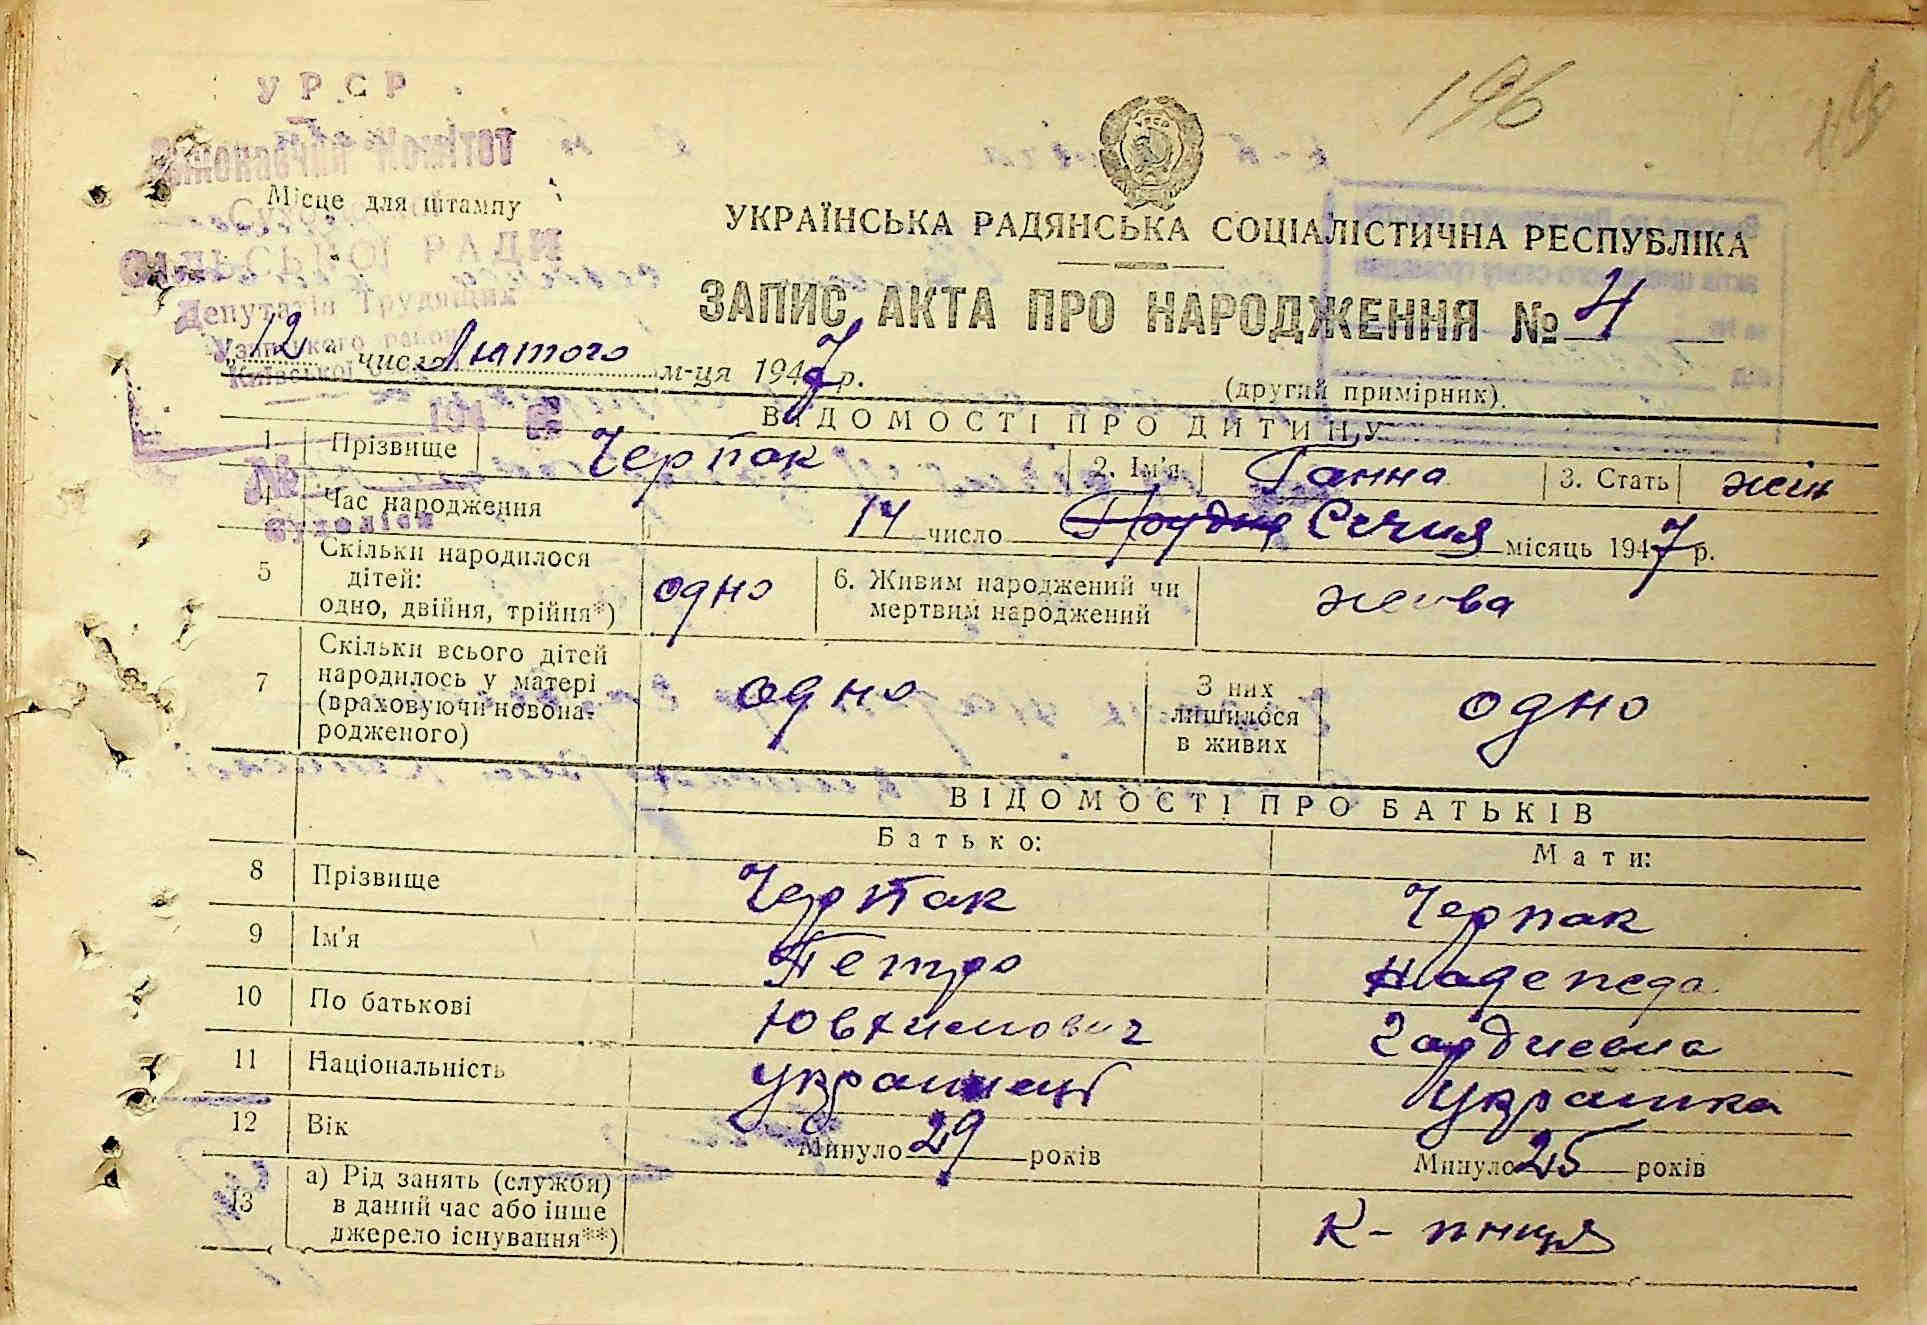 196
УРСР
ВИКОНАВЧИЙ КОМІТЕТ
Місце для штампу
СІЛЬСЬКОЇ РАДИ
Депутатів Трудящих
Узинського району
Київської
194
УРСР
УКРАЇНСЬКА РАДЯНСЬКА СОЦІАЛІСТИЧНА РЕСПУБЛІКА
ЗАПИС АКТА ПРО НАРОДЖЕННЯ № 4
„12“ число Лютого м-ця 1947 р.
(другий примірник).
ВІДОМОСТІ ПРО ДИТИНУ
1 Прізвище Черпак 2. Ім'я Ганна 3. Стать жін
4 Час народження 14 число Грудня Січня місяць 1947 р.
5 Скільки народилося дітей: одно, двійня, трійня*) одно 6. Живим народжений чи мертвим народжений жива
7 Скільки всього дітей народилось у матері (враховуючи новонародженого) одно З них лишилося в живих одно
ВІДОМОСТІ ПРО БАТЬКІВ
Батько: Мати:
8 Прізвище Черпак Черпак
9 Ім'я Петро Надежда
10 По батькові Ювхимович Гордиевна
11 Національність українец украинка
12 Вік Минуло 29 років Минуло 25 років
13 а) Рід занять (служби) в даний час або інше джерело існування**) К-пниця